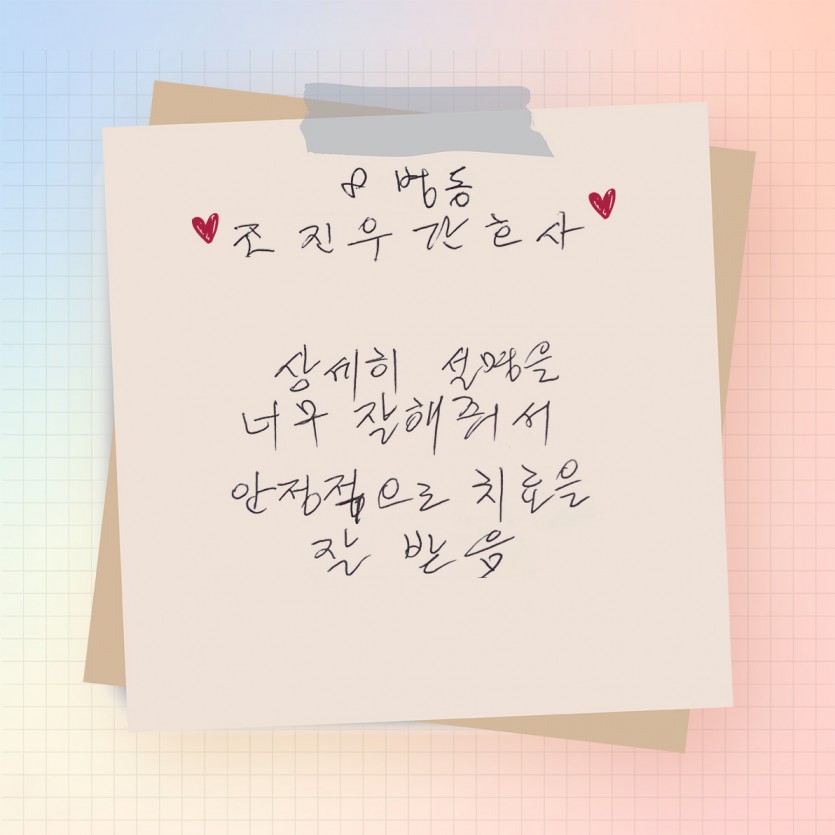 8 병동
조진우 간호사
상세히 설명을
너무 잘해줘서
안정적으로 치료을
잘 받음